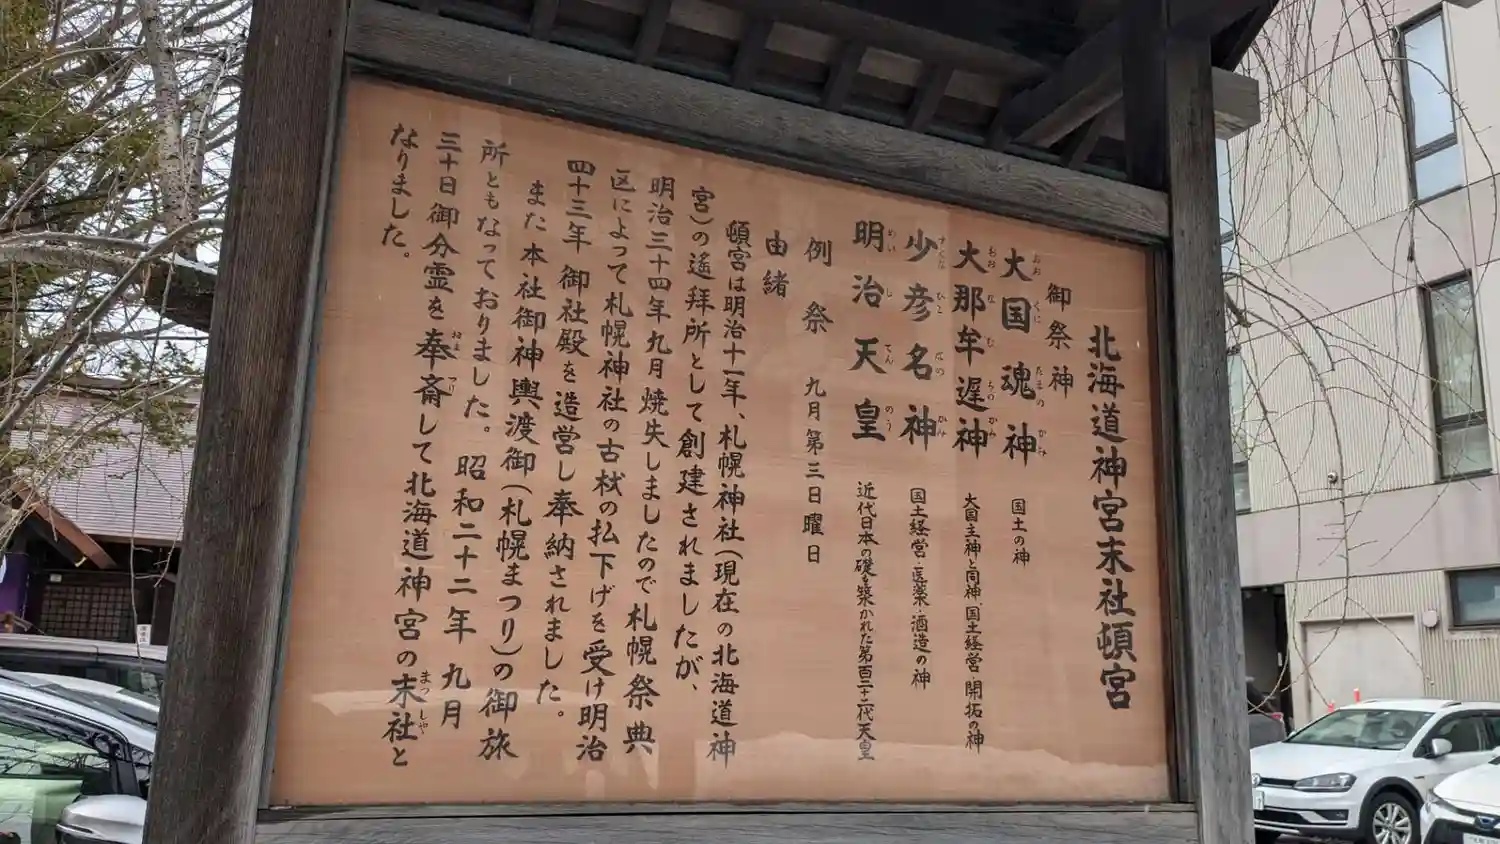 北海道神宮末社頓宮
御祭神
大国魂神 国土の神
大那牟遅神 大国主神と同神、国土経営・開拓の神
少彦名神 国土経営・医薬・酒造の神
明治天皇 近代日本の礎を築かれた第百二十二代天皇
例祭 九月第三日曜日
由緒
頓宮は明治十一年、札幌神社(現在の北海道神
宮)の遙拝所として創建されましたが、
明治三十四年九月焼失しましたので札幌祭典
区によって札幌神社の古材の払下げを受け明治
四十三年 御社殿を造営し奉納されました。
また本社御神輿渡御(札幌まつり)の御旅
所ともなっておりました。昭和二十二年 九月
三十日御分霊を奉斎して北海道神宮の末社と
なりました。
おおくにたまのかみ
おおなむちのかみ
すくなひこなのかみ
めいじてんのう
おまつり
まつしや